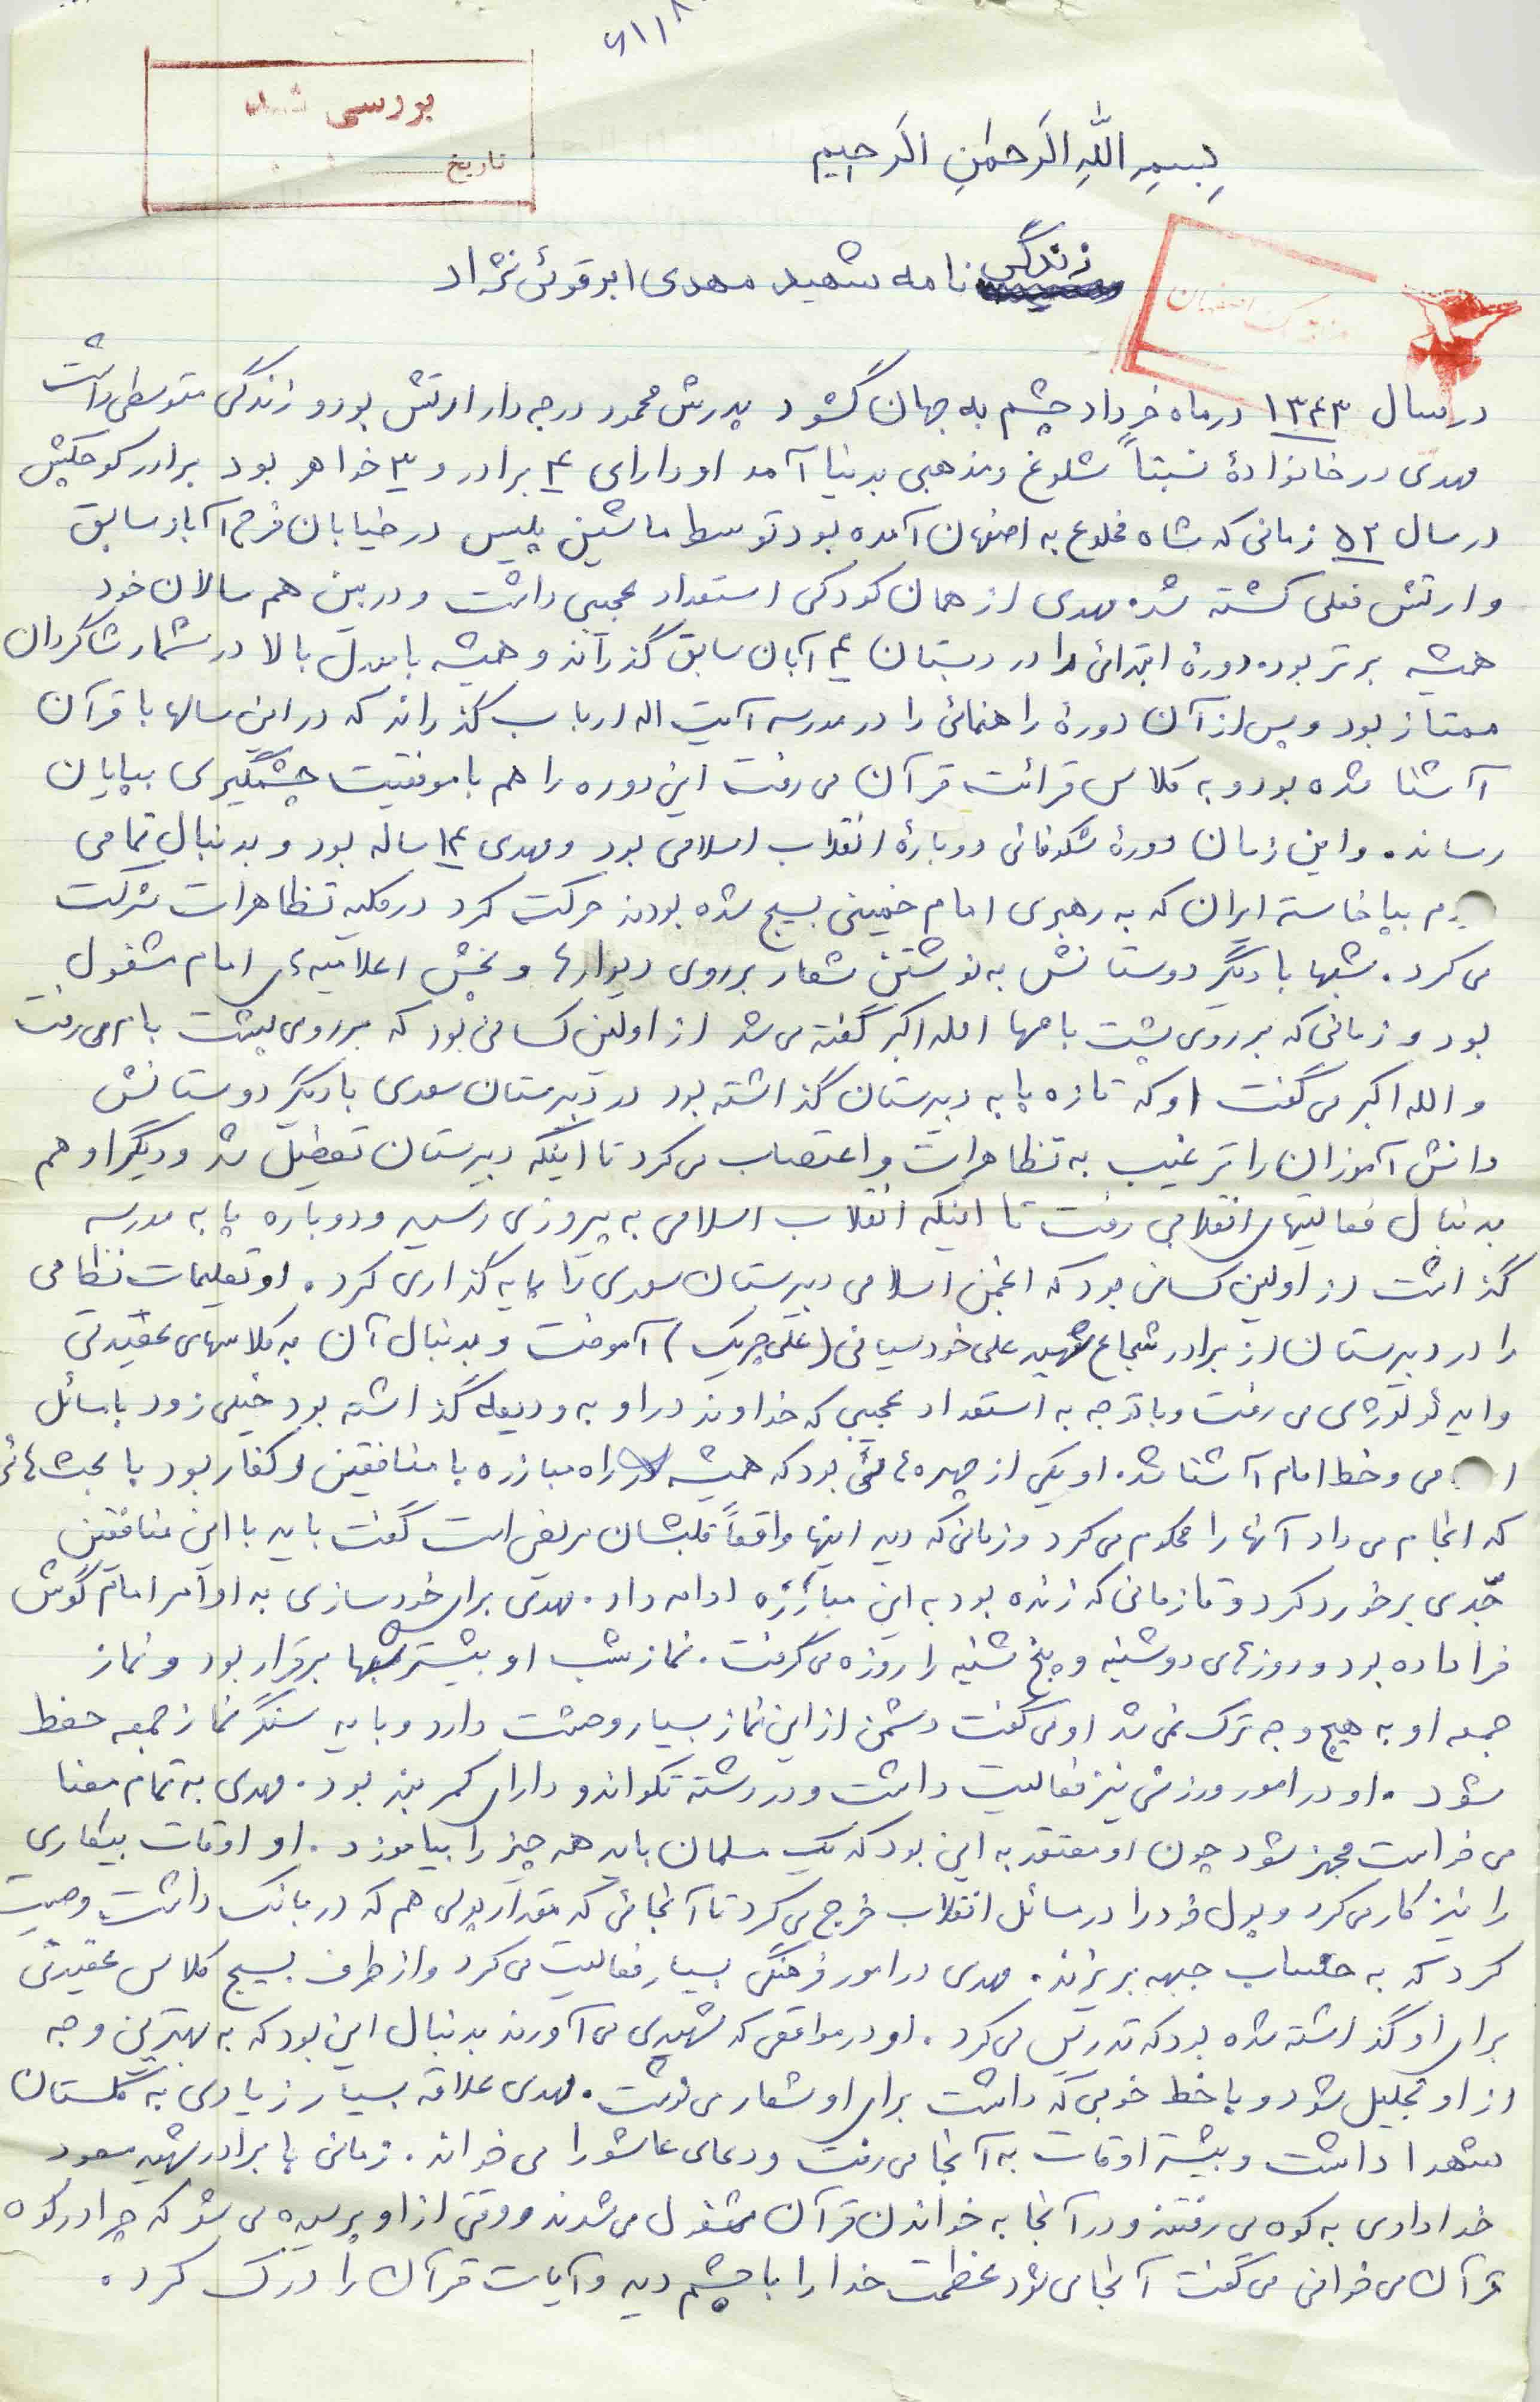 ۶۱۱۸
بررسی شد
تاریخ
بِسمِ اللّهِ الرَحمٰنِ الرَحیمِ
زندگی نامه شهید مهدی ابوقوئی نژاد
در سال ۱۳۴۳ در ماه خرداد چشم به جهان گشود پدرش محمود درجه دار ارتش بود و زندگی متوسطی داشت
مهدی در خانوادهٔ نسبتاً شلوغ و مذهبی بدنیا آمد او دارای ۴ برادر و ۳ خواهر بود برادر کوچکش
در سال ۵۲ زمانی که شاه مخلوع به اصفهان آمده بود توسط ماشین پلیس در خیابان فرح آباد سابق
و ارتش فعلی کشته شد. مهدی از همان کودکی استعداد عجیبی داشت و در بین هم سالان خود
همیشه برتر بود. دورهٔ ابتدائی را در دبستان ۴ آبان سابق گذراند و همیشه با معدل بالا در شمار شاگردان
ممتاز بود و پس از آن دورهٔ راهنمائی را در مدرسه آیت اله ارباب گذراند که در این سالها با قرآن
آشنا شده بود و به کلاس قرائت قرآن می رفت این دوره را هم با موفقیت چشمگیری بپایان
رساند. و این زمان دورهٔ شکوفائی دوبارهٔ انقلاب اسلامی بود و مهدی ۱۴ ساله بود و بدنبال تمامی
م بپا خاسته ایران که به رهبری امام خمینی بسیج شده بودند حرکت کرد در کلیه تظاهرات شرکت
می کرد. شبها با دیگر دوستانش به نوشتن شعار بر روی دیوارها و پخش اعلامیه های امام مشغول
بود و زمانی که بر روی پشت بامها الله اکبر گفته می شد از اولین کسانی بود که بر روی پشت بام می رفت
و الله اکبر می گفت او که تازه پا به دبیرستان گذاشته بود در دبیرستان سعدی با دیگر دوستانش
دانش آموزان را ترغیب به تظاهرات و اعتصاب می کرد تا اینکه دبیرستان تعطیل شد و دیگر او هم
بدنبال فعالیتهای انقلابی رفت تا اینکه انقلاب اسلامی به پیروزی رسید و دوباره پا به مدرسه
گذاشت از اولین کسانی بود که انجمن اسلامی دبیرستان سعدی را پایه گذاری کرد. او تعلیمات نظامی
را در دبیرستان از برادر شجاع شهید علی خودسیانی (علی چریک) آموخت و بدنبال آن به کلاسهای عقیدتی
و ایدئولوژی می رفت و با توجه به استعداد عجیبی که خداوند در او به ودیعه گذاشته بود خیلی زود با مسائل
ا می و خط امام آشنا شد. او یکی از چهره هائی بود که همیشه در راه مبارزه با منافقین و کفار بود با بحث هائی
که انجام می داد آنها را محکوم می کرد و زمانی که دید اینها واقعاً قلبشان مریض است گفت باید با این منافقین
جّدی برخورد کرد و تا زمانی که زنده بود به این مبارزه ادامه داد. مهدی برای خودسازی به اوامر امام گوش
فرا داده بود و روزهای دوشنبه و پنج شنبه را روزه می گرفت. نماز شب او بیشتر شبها برقرار بود و نماز
جمعه او به هیچ وجه ترک نمی شد او می گفت دشمن از این نماز بسیار وحشت دارد و باید سنگر نماز جمعه حفظ
شود. او در امور ورزشی نیز فعالیت داشت و در رشته تکواندو دارای کمربند بود. مهدی به تمام معنا
می خواست مجهز شود چون او معتقد به این بود که یک مسلمان باید همه چیز را بیاموزد. او اوقات بیکاری
را نیز کار می کرد و پول خود را در مسائل انقلاب خرج می کرد تا آنجائی که مقدار پولی هم که در بانک داشت وصیت
کرد که به حساب جبهه بریزند. مهدی در امور فرهنگی بسیار فعالیت می کرد و از طرف بسیج کلاس عقیدتی
برای او گذاشته شده بود که تدریس می کرد. او در مواقعی که شهیدی می آوردند بدنبال این بود که به بهترین وجه
از او تجلیل شود و با خط خوبی که داشت برای او شعار می نوشت. مهدی علاقه بسیار زیادی به گلستان
شهدا داشت و بیشتر اوقات به آنجا می رفت و دعای عاشورا می خواند. زمانی با برادر شهید مسعود
خدادادی به کوه می رفتند و در آنجا به خواندن قرآن مشغول می شدند و وقتی از او پرسیده می شود که چرا در کوه
قرآن می خوانی می گفت آنجا می شود عظمت خدا را با چشم دید و آیات قرآن را درک کرد.